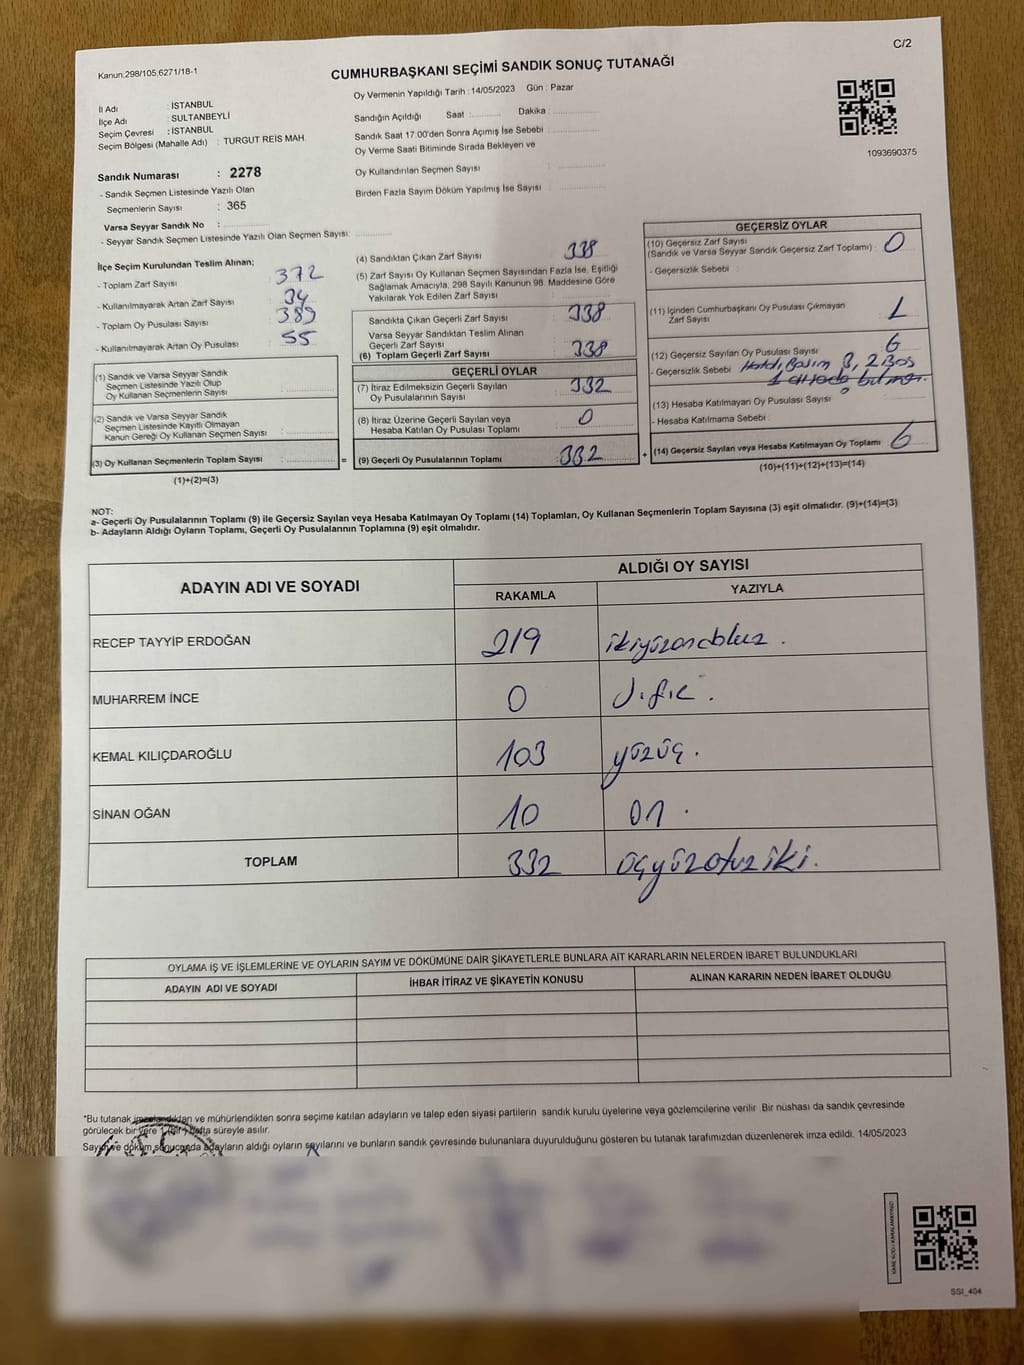 C/2
Kanun:298/105,6271/18-1
CUMHURBAŞKANI SEÇİMİ SANDIK SONUÇ TUTANAĞI
Oy Vermenin Yapıldığı Tarih : 14/05/2023 Gün : Pazar
İl Adı : İSTANBUL
İlçe Adı : SULTANBEYLİ
Seçim Çevresi : İSTANBUL
Seçim Bölgesi (Mahalle Adı) : TURGUT REİS MAH.
Sandığın Açıldığı Saat : Dakika :
Sandık Saat 17:00'den Sonra Açımış İse Sebebi :
Oy Verme Saati Bitiminde Sırada Bekleyen ve
Oy Kullandırılan Seçmen Sayısı :
Birden Fazla Sayım Döküm Yapılmış İse Sayısı :
1093690375
Sandık Numarası : 2278
- Sandık Seçmen Listesinde Yazılı Olan
Seçmenlerin Sayısı : 365
Varsa Seyyar Sandık No :
- Seyyar Sandık Seçmen Listesinde Yazılı Olan Seçmen Sayısı:
İlçe Seçim Kurulundan Teslim Alınan;
- Toplam Zarf Sayısı : 372
- Kullanılmayarak Artan Zarf Sayısı : 34
- Toplam Oy Pusulası Sayısı : 389
- Kullanılmayarak Artan Oy Pusulası : 55
(1) Sandık ve Varsa Seyyar Sandık
Seçmen Listesinde Yazılı Olup
Oy Kullanan Seçmenlerin Sayısı :
(2) Sandık ve Varsa Seyyar Sandık
Seçmen Listesinde Kayıtlı Olmayan
Kanun Gereği Oy Kullanan Seçmen Sayısı :
(3) Oy Kullanan Seçmenlerin Toplam Sayısı : =
(1)+(2)=(3)
(4) Sandıktan Çıkan Zarf Sayısı : 338
(5) Zarf Sayısı Oy Kullanan Seçmen Sayısından Fazla İse, Eşitliği
Sağlamak Amacıyla, 298 Sayılı Kanunun 98. Maddesine Göre
Yakılarak Yok Edilen Zarf Sayısı :
Sandıkta Çıkan Geçerli Zarf Sayısı : 338
Varsa Seyyar Sandıktan Teslim Alınan
Geçerli Zarf Sayısı :
(6) Toplam Geçerli Zarf Sayısı : 338
GEÇERLİ OYLAR
(7) İtiraz Edilmeksizin Geçerli Sayılan
Oy Pusulalarının Sayısı : 332
(8) İtiraz Üzerine Geçerli Sayılan veya
Hesaba Katılan Oy Pusulası Toplamı : 0
(9) Geçerli Oy Pusulalarının Toplamı : 332 +
GEÇERSİZ OYLAR
(10) Geçersiz Zarf Sayısı
(Sandık ve Varsa Seyyar Sandık Geçersiz Zarf Toplamı) : 0
- Geçersizlik Sebebi :
(11) İçinden Cumhurbaşkanı Oy Pusulası Çıkmayan
Zarf Sayısı : 1
(12) Geçersiz Sayılan Oy Pusulası Sayısı : 6
- Geçersizlik Sebebi : Hatalı Basım 3, 2 Boş
(13) Hesaba Katılmayan Oy Pusulası Sayısı : 0
- Hesaba Katılmama Sebebi :
(14) Geçersiz Sayılan veya Hesaba Katılmayan Oy Toplamı : 6
(10)+(11)+(12)+(13)=(14)
NOT:
a- Geçerli Oy Pusulalarının Toplamı (9) ile Geçersiz Sayılan veya Hesaba Katılmayan Oy Toplamı (14) Toplamları, Oy Kullanan Seçmenlerin Toplam Sayısına (3) eşit olmalıdır. (9)+(14)=(3)
b- Adayların Aldığı Oyların Toplamı, Geçerli Oy Pusulalarının Toplamına (9) eşit olmalıdır.
ADAYIN ADI VE SOYADI
ALDIĞI OY SAYISI
RAKAMLA YAZIYLA
RECEP TAYYİP ERDOĞAN 219 ikiyüzondokuz.
MUHARREM İNCE 0 sıfır.
KEMAL KILIÇDAROĞLU 103 yüzüç.
SİNAN OĞAN 10 on.
TOPLAM 332 üçyüzotuziki.
OYLAMA İŞ VE İŞLEMLERİNE VE OYLARIN SAYIM VE DÖKÜMÜNE DAİR ŞİKAYETLERLE BUNLARA AİT KARARLARIN NELERDEN İBARET BULUNDUKLARI
ADAYIN ADI VE SOYADI İHBAR İTİRAZ VE ŞİKAYETİN KONUSU ALINAN KARARIN NEDEN İBARET OLDUĞU
*Bu tutanak imzalandıktan ve mühürlendikten sonra seçime katılan adayların ve talep eden siyasi partilerin sandık kurulu üyelerine veya gözlemcilerine verilir. Bir nüshası da sandık çevresinde
görülecek bir yere 1 (bir) hafta süreyle asılır.
Sayım ve döküm sonucunda adayların aldığı oyların sayılarını ve bunların sandık çevresinde bulunanlara duyurulduğunu gösteren bu tutanak tarafımızdan düzenlenerek imza edildi. 14/05/2023
SSI_404